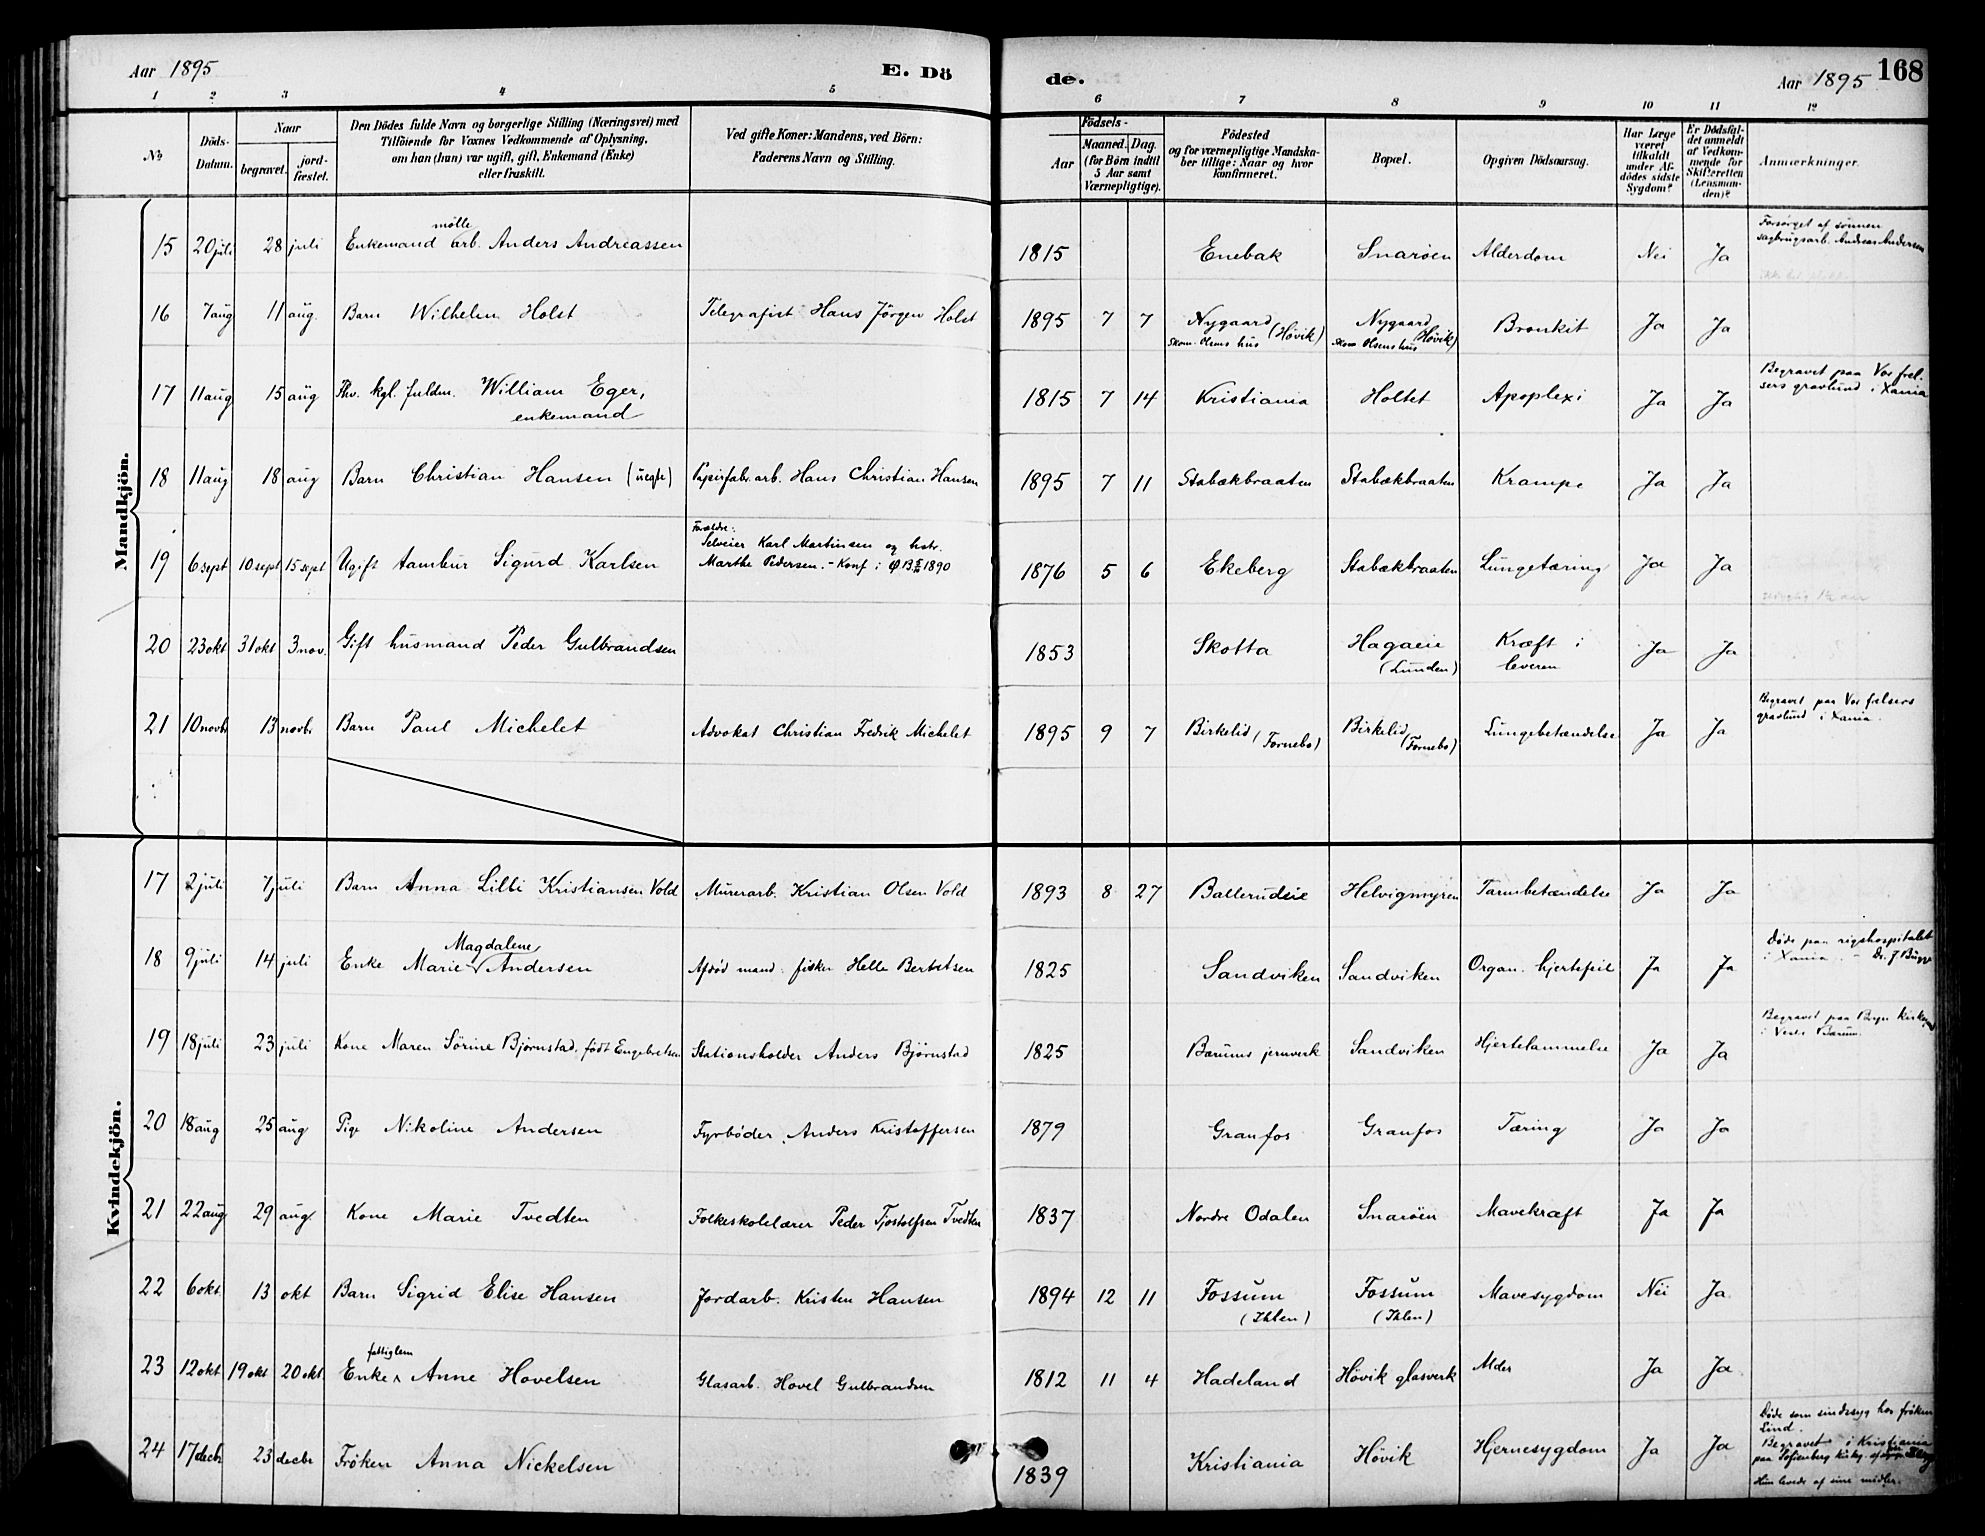 Aar 1895
E. Dö
de.
Aar 1895
168
1 2 3 4 5 6 7 8 9 10 11 12
No
Döds-
Datum.
Naar
begravet.
jord-
fæstet.
Den Dödes fulde Navn og borgerlige Stilling (Næringsvei) med
Tilföiende for Voxnes Vedkommende af Oplysning,
om han (hun) var ugift, gift, Enkemand (Enke)
eller fraskilt.
Ved gifte Koner: Mandens, ved Börn:
Faderens Navn og Stilling.
Födsels-
Aar
Maaned. Dag.
(for Börn indtil
5 Aar samt
Værnepligtige).
Födested
og for værnepligtige Mandska-
ber tillige: Naar og hvor
konfirmeret.
Bopæl.
Opgiven Dödsaarsag.
Har Læge
været
tilkaldt
under Af-
dödes sidste
Sygdom?
Er Dödsfal-
det anmeldt
af Vedkom-
mende for
Skifteretten
(Lensman-
den)?
Anmærkninger.
Mandkjön.
15 20 juli 28 juli Enkemand mølle arb. Anders Andreassen 1815 Enebak Snarøen Alderdom Nei Ja Forsørget af sønnen
sagbrugsarb. Andreas Andersen
16 7 aug 11 aug. Barn Wilhelm Holst Telegrafist Hans Jörgen Holst 1895 7 7 Nygaard (Høvik) Nygaard (Høvik) Bronkit Ja Ja
Skom. Olsens hus Skom Olsens hus
17 11 aug 15 aug Fhv. kgl. fuldm. William Eger, 1815 7 14 Kristiania Holtet Apoplexi Ja Ja Begravet paa Vor frel-
sers gravlund i Xania
enkemand
18 11 aug 18 aug Barn Christian Hansen (uegte) Papirfabr. arb. Hans Christian Hansen 1895 7 11 Stabækbraaten Stabækbraaten Krampe Ja Ja
19 6 sept 10 sept 15 sept Ugift tambur Sigurd Karlsen Forældre:
Selveier Karl Martinsen og hstr.
Marthe Pedersen. - Konf i 1890
1876 5 6 Ekeberg Stabækbraaten Lungetæring Ja Ja
20 23 okt 31 okt 3 nov. Gift husmand Peder Gulbrandsen 1853 Skotta Hagaeie Kræft i Ja Ja
(Lunden) leveren
21 10 novbr 13 novbr Barn Paul Michelet Advokat Christian Fredrik Michelet 1895 9 7 Birkelid (Fornebo) Birkelid (Fornebo) Lungebetændelse Ja Ja Begravet paa Vor frelsers
gravlund i Xania.
Kvindekjön.
17 2 juli 7 juli Barn Anna Lilli Kristiansen Vold Murerarb. Kristian Olsen Vold 1893 8 27 Ballerudeie Helvigmyren Tarmbetændelse Ja Ja
18 9 juli 14 juli Enke Marie Magdalene Andersen Afdød mand: fisker Helle Bertetsen 1825 Sandviken Sandviken Organ. hjertefeil Ja Ja Døde paa rigshospitalet
i Xania. - Dr. J Bugge
19 18 juli 23 juli Kone Maren Sörine Bjørnstad, født Engebretsen Stationsholder Anders Bjørnstad 1825 Bærums jernverk Sandviken Hjertelammelse Ja Ja Begravet paa Bryn kirkegd
i Vestr Bærum.
20 18 aug 25 aug Pige Nikoline Andersen Fyrbøder Anders Kristoffersen 1879 Granfos Granfos Tæring Ja Ja
21 22 aug 29 aug. Kone Marie Tvedten Folkeskolelærer Peder Tjostolfsen Tvedten 1837 Nordre Odalen Snarøen Mavekræft Ja Ja
22 6 okt 13 okt Barn Sigrid Elise Hansen Jordarb. Kristen Hansen 1894 12 11 Fossum Fossum Mavesygdom Nei Ja
(Ihlen) (Ihlen)
23 12 okt 19 okt 20 okt. Enke fattiglem Anne Hovelsen Glasarb. Hovel Gulbrandsen 1812 11 4 Hadeland Høvik glasverk Alder Ja Ja
24 17 decbr 23 decbr Frøken Anna Nickelsen 1839 Kristiania Høvik Hjernesygdom Ja Ja Døde som sindssyg hos frøken
Lind.
Begravet i Kristiania
paa Sofienberg kirkg. af
Hun levede af sine midler.